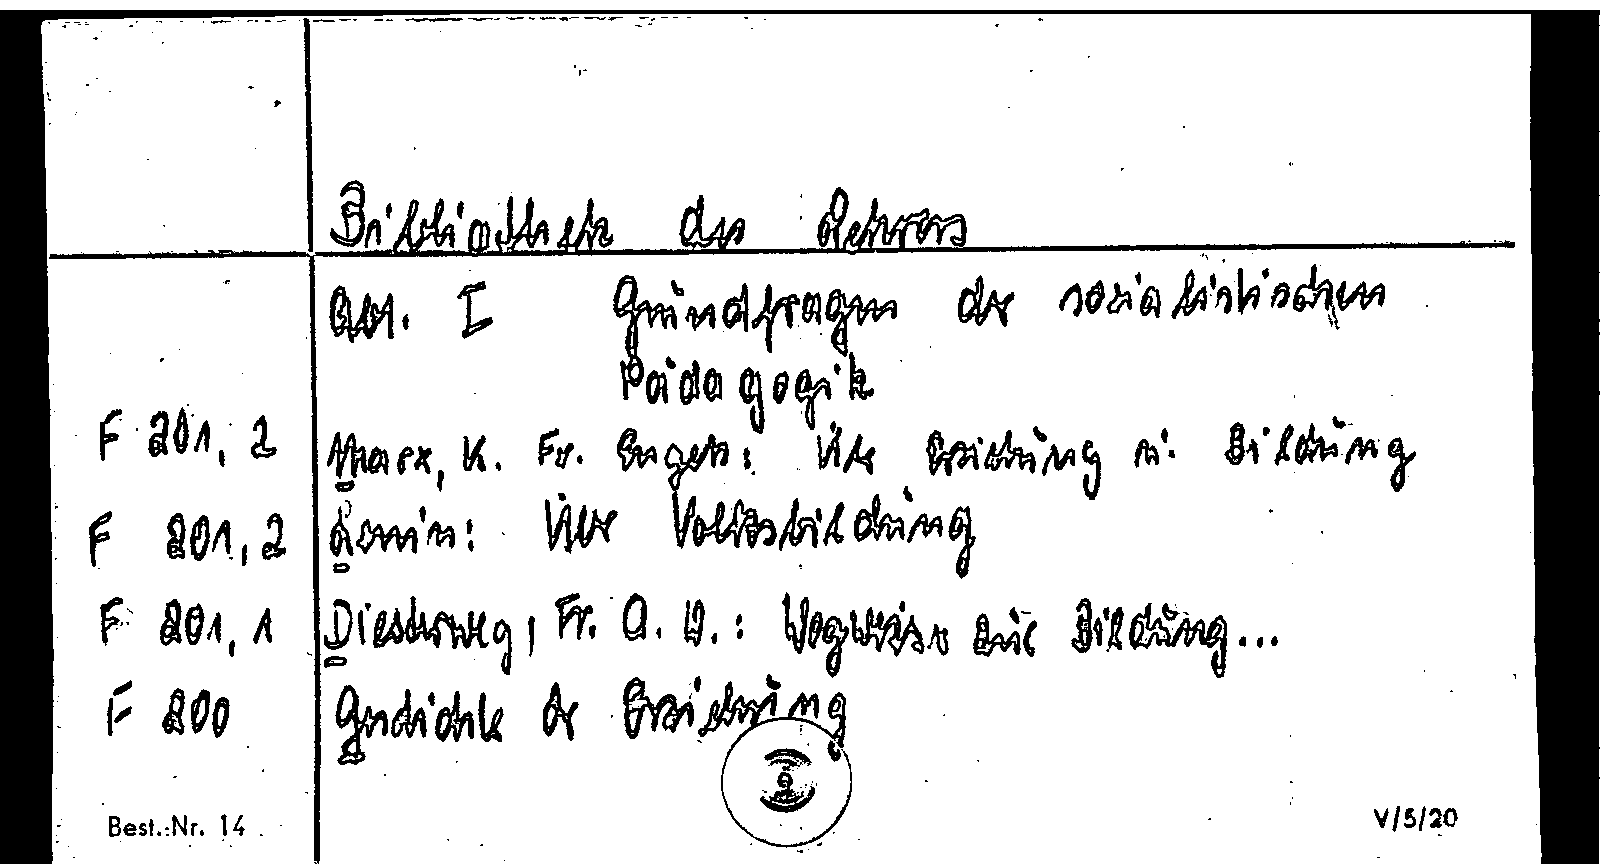 Bibliothek des Lehrers
Abt. I Grundfragen der sozialistischen
Pädagogik
F 201, 2 Marx, K. Fr. Engels: Über Erziehung u. Bildung
F 201, 2 Lenin: Über Volksbildung
F 201, 1 Diesterweg, Fr. A. W.: Wegweiser zur Bildung...
F 200 Geschichte der Erziehung
Best.-Nr. 14 V/5/20